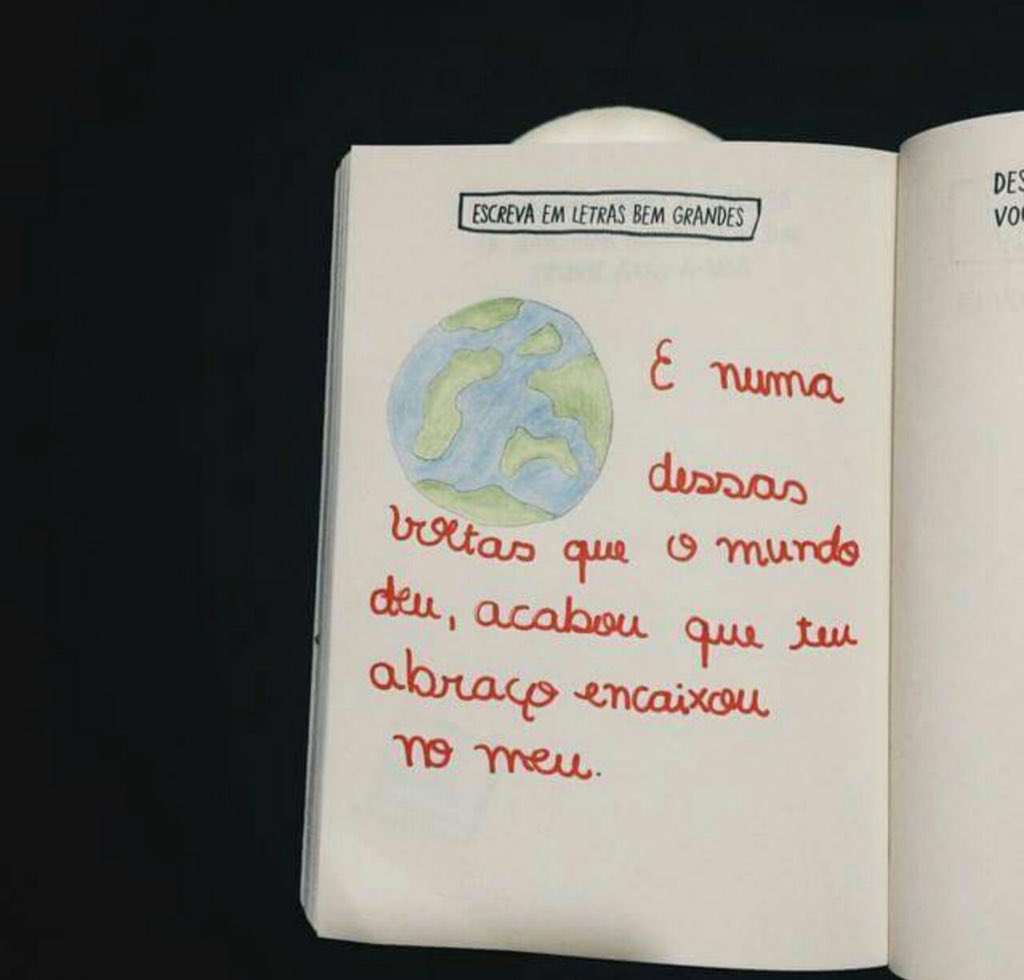 ESCREVA EM LETRAS BEM GRANDES
E numa
dessas
voltas que o mundo
deu, acabou que teu
abraço encaixou
no meu.